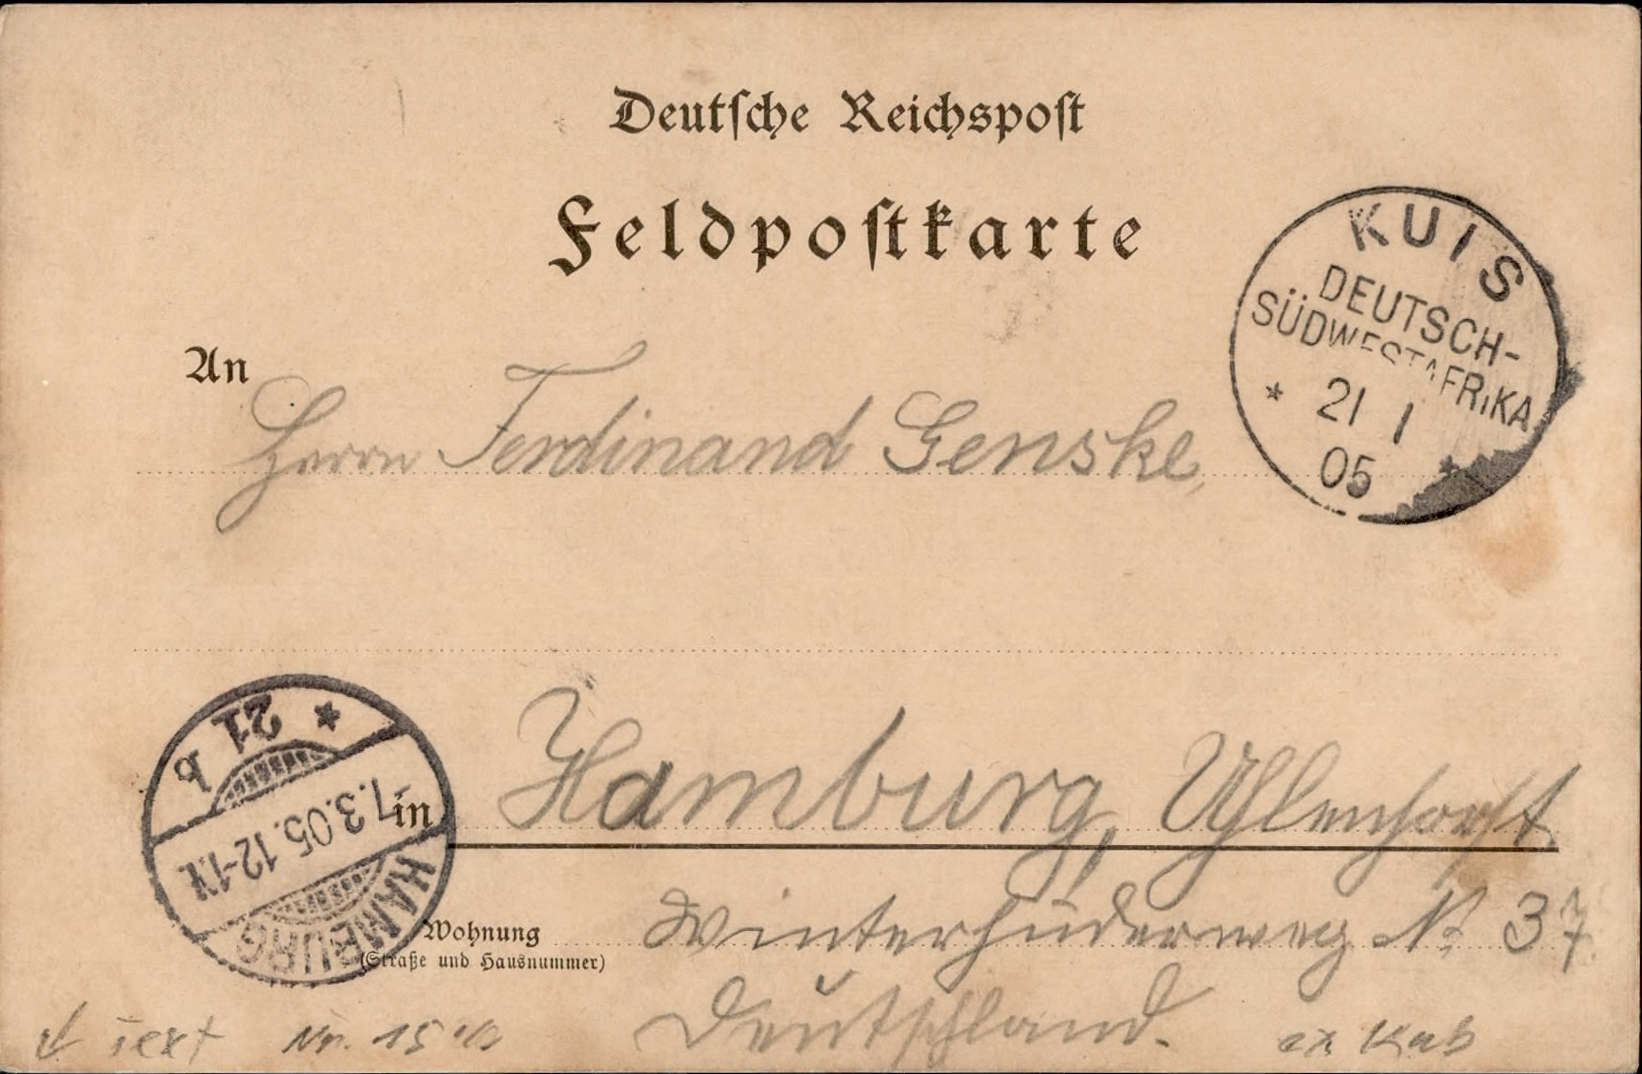 Deutsche Reichspost
Feldpostkarte
KUIS
DEUTSCH-
SÜDWESTAFRIKA
* 21 1 *
05
An
Herrn Ferdinand Genske,
* 21 b
-7.3.05.12-1N
HAMBURG
in Hamburg, Uhlenhorst
Wohnung Winterhuderweg No 37.
(Straße und Hausnummer)
Deutschland.
Text Nr. 15